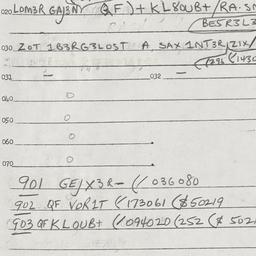 020 LOM3R GAJ3N QF)+KL8OUB+/RA.SM
BE5R3L3
030 ZOT 1B3RG3LOST A SAX 1NT3R,Z1X/
031 — 032 —
040 O
050 O
060 O
070 O
901 GEJX3R- (/ 036080
902 QF VOR1T (/173061 ($50219
903 QF KLOUB+ (/094020 (252 ($ 502